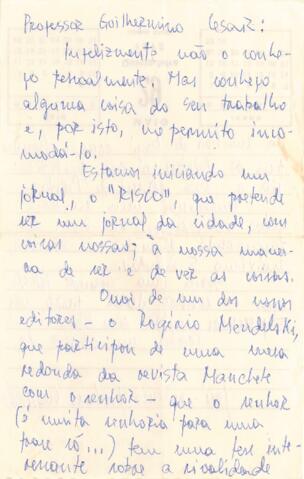 Professor Guilhermino Cesar:
Infelizmente não o conhe-
ço pessoalmente. Mas conheço
alguma coisa do seu trabalho
e, por isto, me permito inco-
modá-lo.
Estamos iniciando um
jornal, o "RISCO", que pretende
ser um jornal da cidade, com
coisas nossas; à nossa manei-
ra de ser e de ver as coisas.
Ouvi, de um dos nossos
editores - o Rogério Mendelski,
que participou de uma mesa
redonda da revista Manchete
com o senhor - que o senhor
(é muita senhoria para uma
frase só...) tem uma tese inte-
ressante sobre a rivalidade